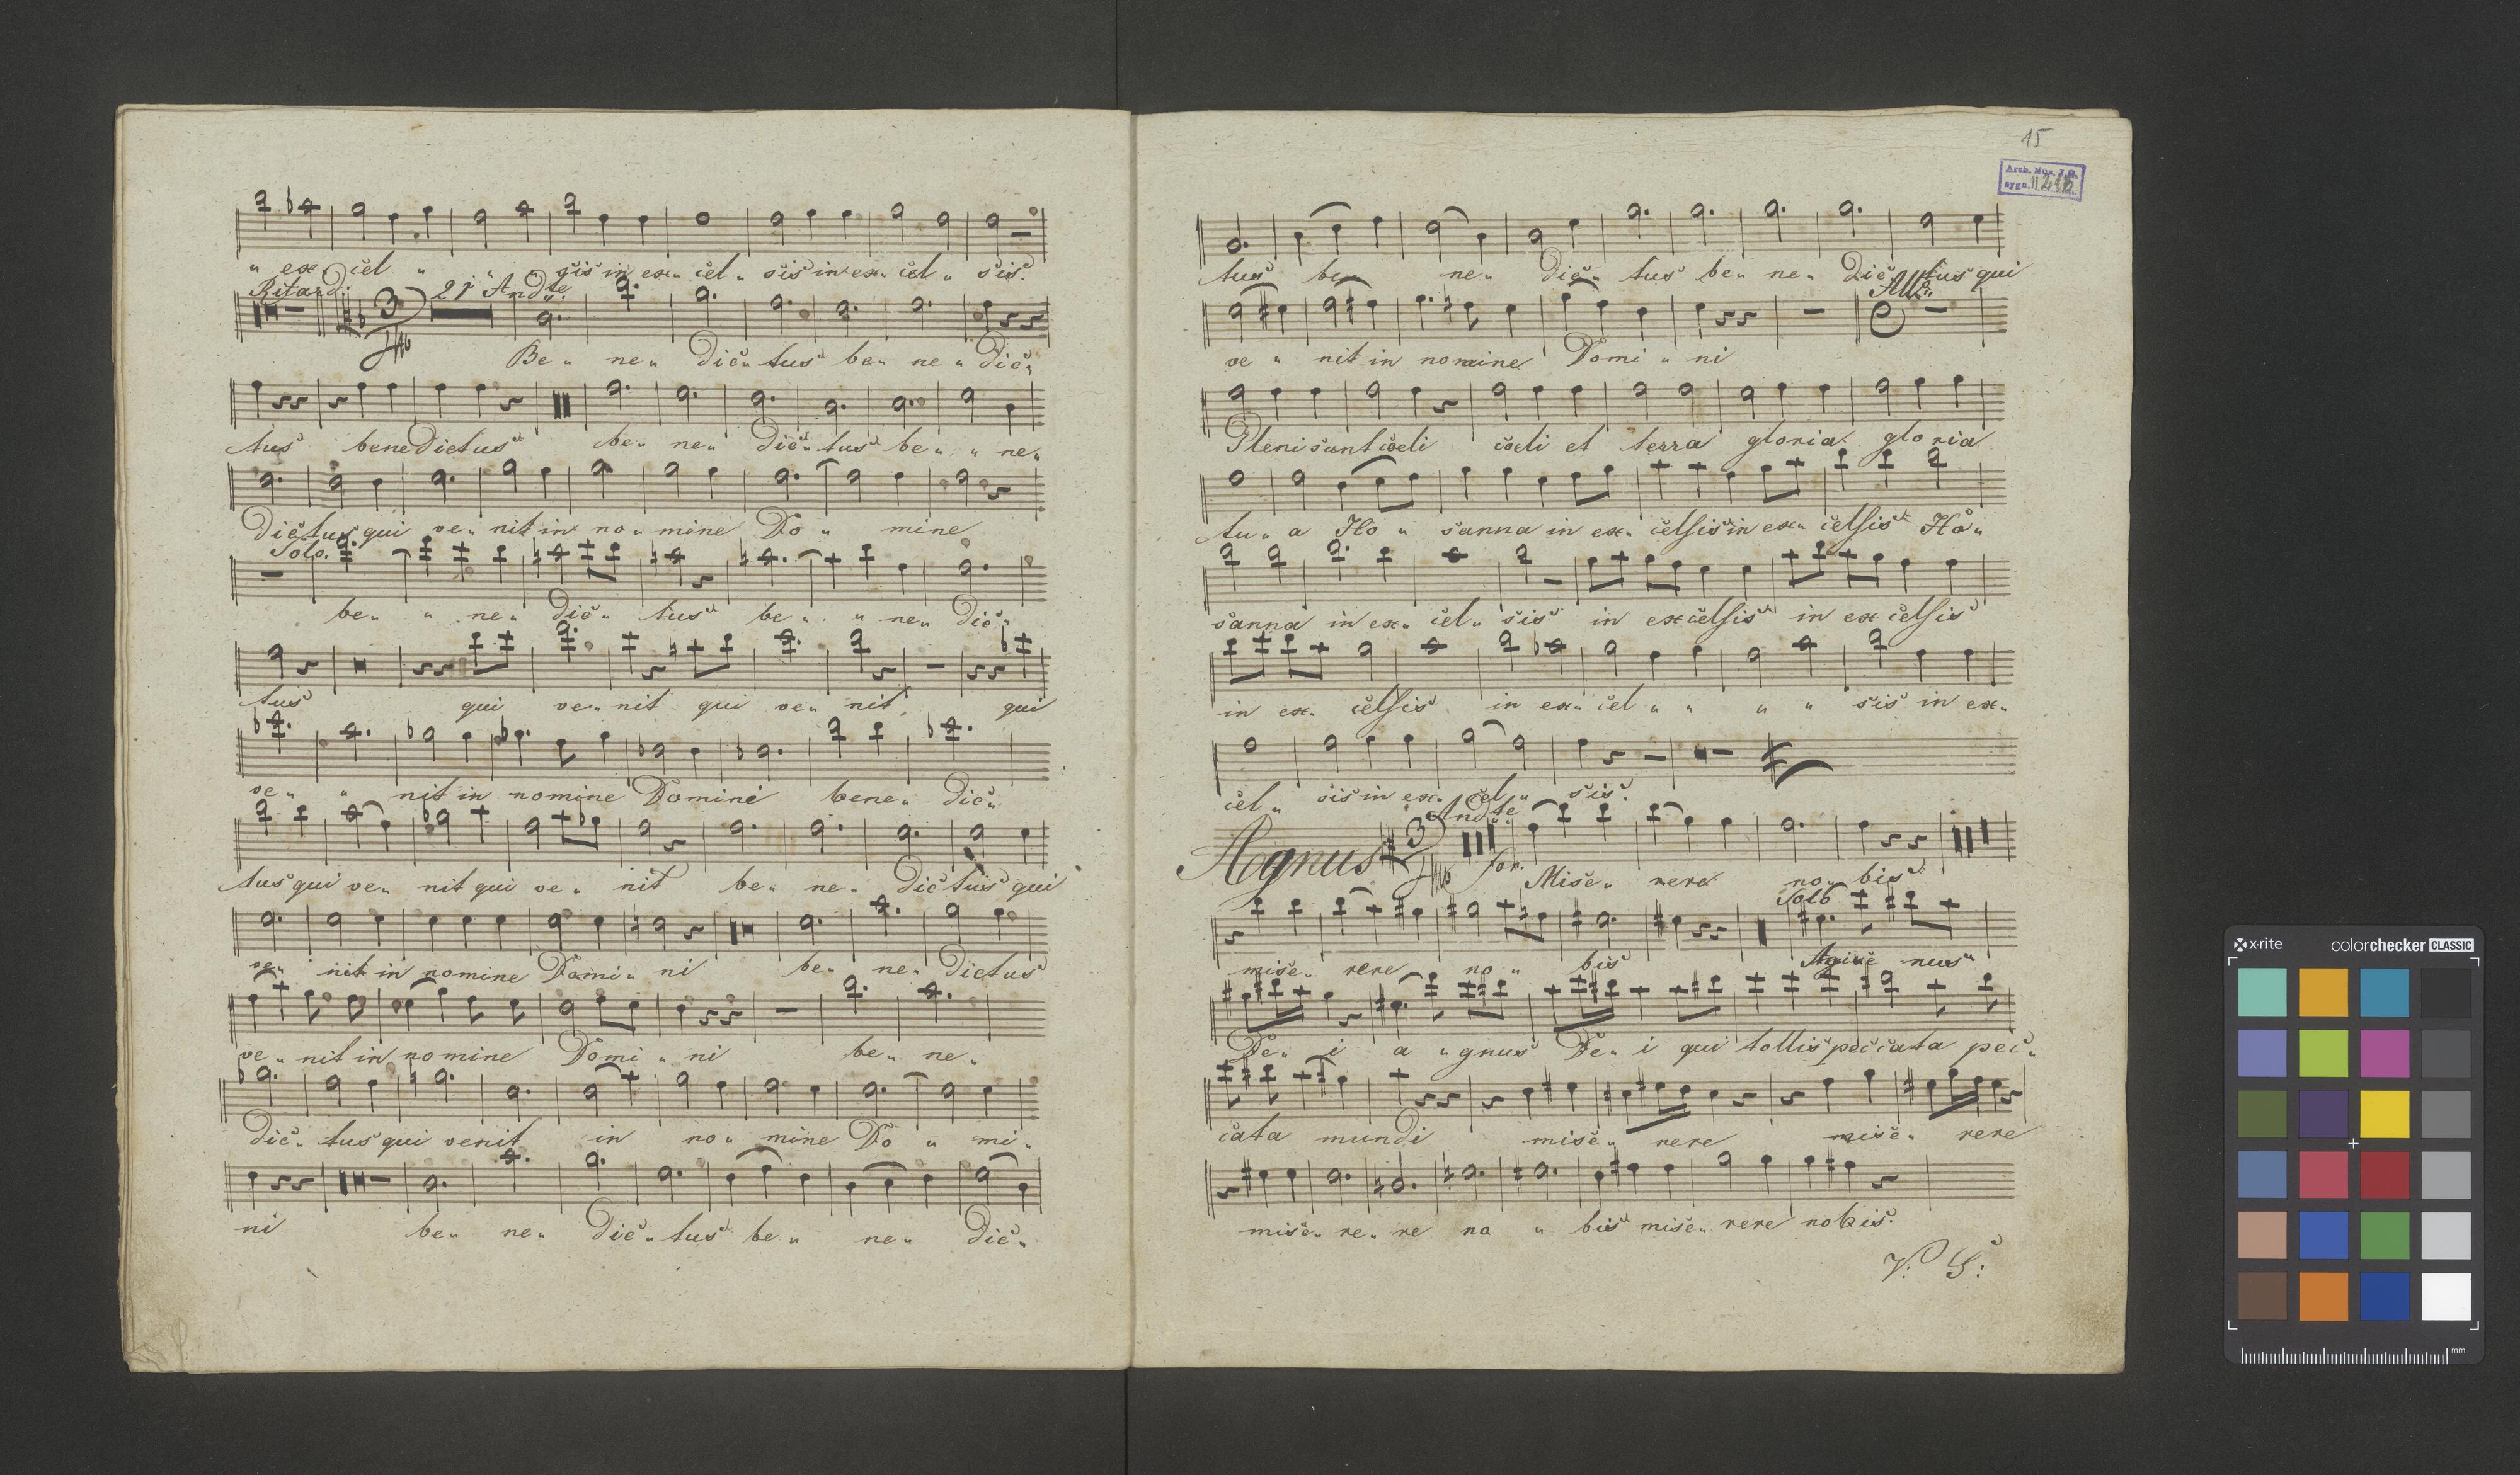 „ ex„ cel „ „ „ sis in ex„ cel „ sis in ex„ cel „ sis.
Ritard: 21 Andte
Be „ ne „ dic„ tus be„ ne „ dic„
tus benedictus be„ ne„ dic„ tus be „ „ ne„
dictus qui ve„ nit in no „ mine Do „ mine
Solo.
be„ „ ne„ dic„ tus be „ „ ne„ dic„
tus qui ve„ nit qui ve„ nit, qui
ve „ „ nit in nomine Domini bene„ dic„
tus qui ve„ nit qui ve „ nit be„ ne„ dictus qui
ve„ nit in nomine Domi„ ni be„ ne„ dictus
ve „ nit in nomine Domi „ ni be„ ne„
dic„ tus qui venit in no „ mine Do „ mi„
ni be„ ne„ dic„ tus be „ ne„ dic„
15
Arch. Muz. J.G.
sygn.
tus be„ ne„ dic„ tus be„ ne„ dic„ tus qui
Allo:
ve „ nit in nomine Domi „ ni
Pleni sunt coeli coeli et terra gloria gloria
tu „ a Ho „ sanna in ex„ celsis in ex„ celsis Ho„
sanna in ex„ cel„ sis in excelsis in excelsis
in ex„ celsis in ex„ cel „ „ „ „ sis in ex„
cel „ sis in ex„ cel „ sis.
Andte
Agnus for. Mise„ rere no„ bis
Solo
mise„ rere no „ bis Agnus
De„ i a „ gnus De„ i qui tollis peccata pec„
cata mundi mise„ rere mise„ rere
mise„ re„ re no „ bis mise„ rere nobis.
V: S:
x-rite colorchecker CLASSIC
mm